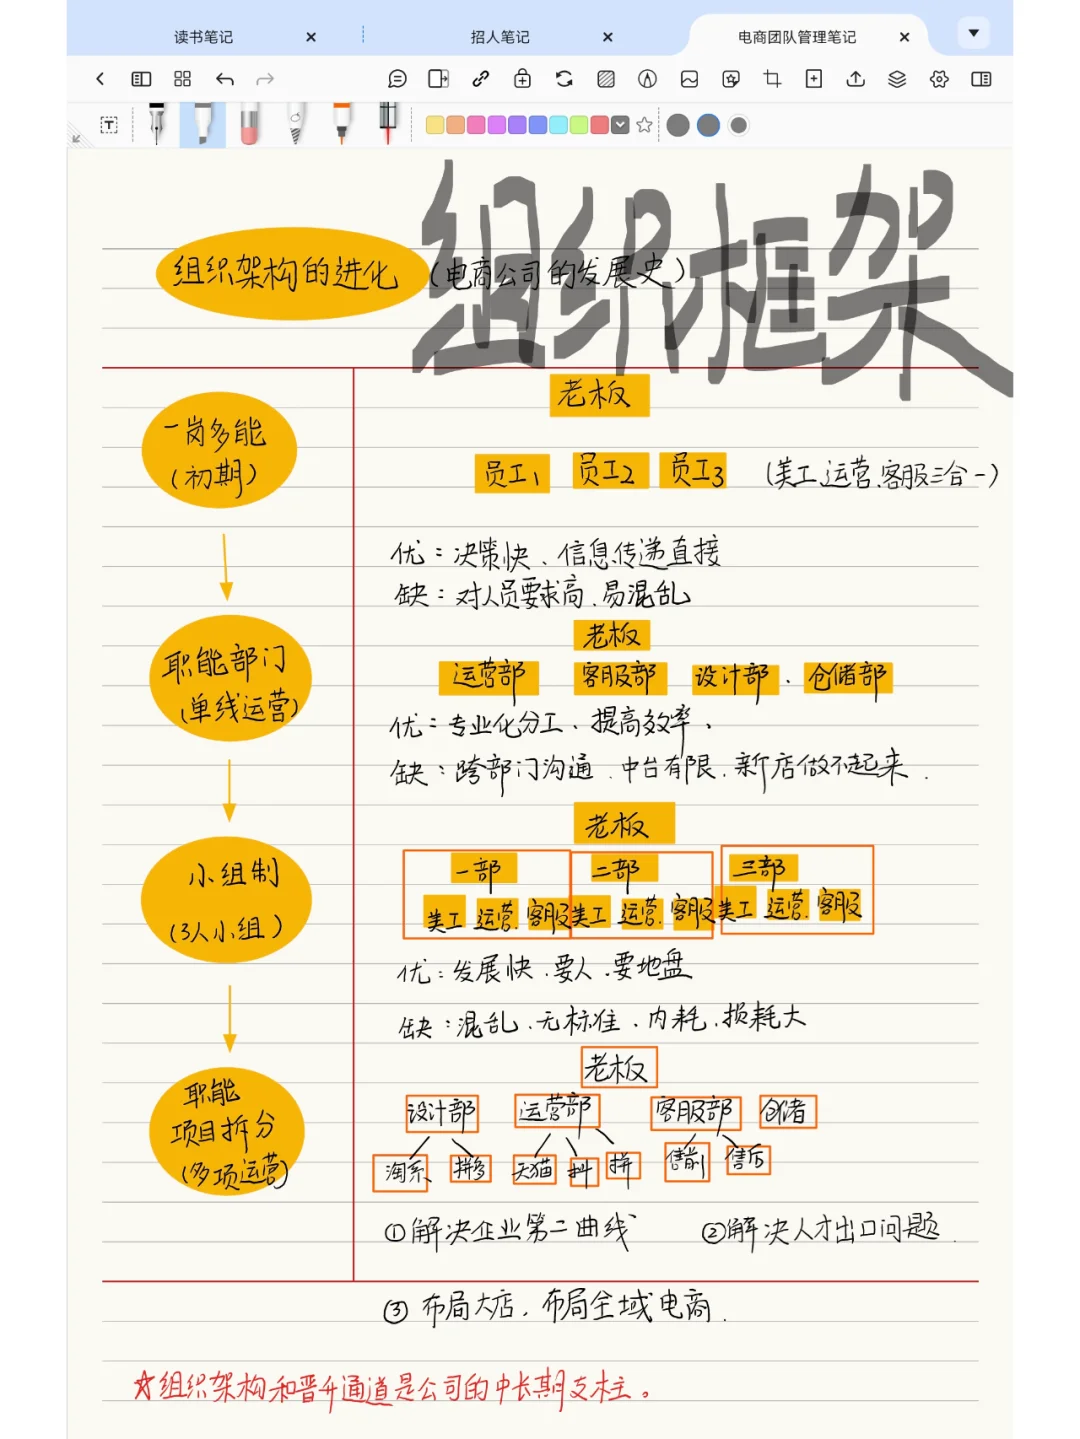 读书笔记 招人笔记 电商团队管理笔记
组织框架
组织架构的进化 (电商公司的发展史)
老板
一岗多能
(初期)
员工1 员工2 员工3 (美工.运营.客服三合一)
优:决策快、信息传递直接
缺:对人员要求高、易混乱
老板
职能部门
(单线运营)
运营部 客服部 设计部 . 仓储部
优:专业化分工、提高效率.
缺:跨部门沟通.中台有限.新店做不起来.
老板
小组制
(3人小组)
一部 二部 三部
美工 运营. 客服 美工 运营. 客服 美工 运营. 客服
优:发展快.要人.要地盘
缺:混乱.无标准.内耗.损耗大
老板
职能
项目拆分
(多项运营)
设计部 运营部 客服部 仓储
淘系 拼多 天猫 抖 拼 售前 售后
①解决企业第二曲线 ②解决人才出口问题.
③布局大店.布局全域电商.
☆组织架构和晋升通道是公司的中长期支柱。